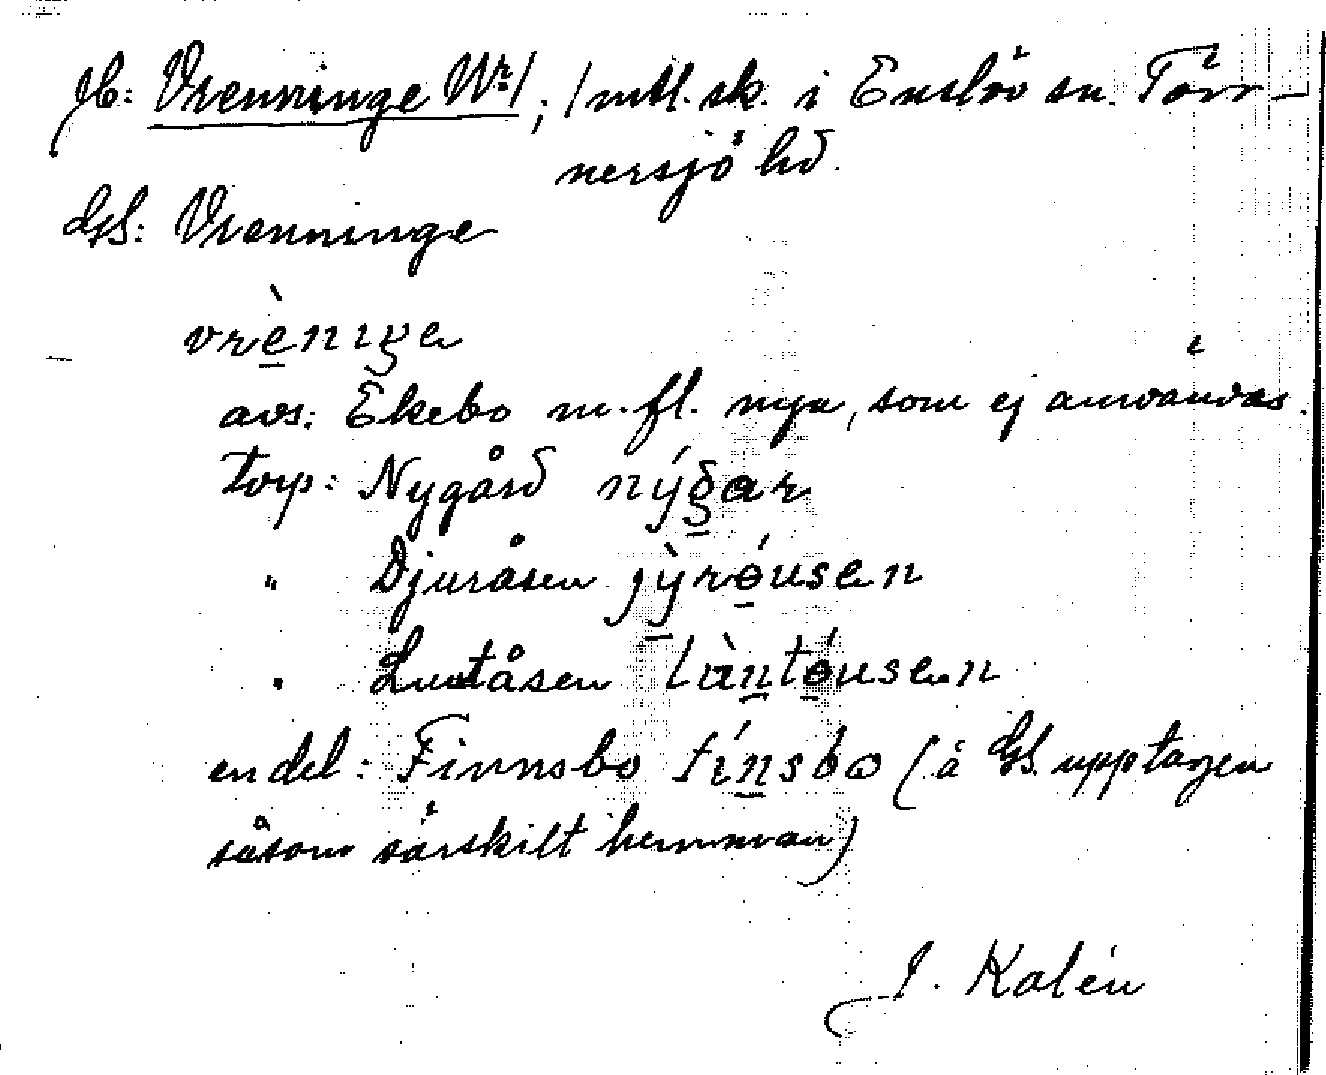 Jb: Vrenninge Nr 1; 1 mtl. sk. i Enslöv sn. Tön-
nersjö hd.
GS: Vrenninge
vrèniŋe
avs: Ekebo m. fl. nya, som ej användas.
torp: Nygård nýgar
" Djuråsen jỳróusen
" Luntåsen làntóusen
en del: Finnsbo fínsbo (å GS. upptagen
såsom särskilt hemman)
J. Kalén